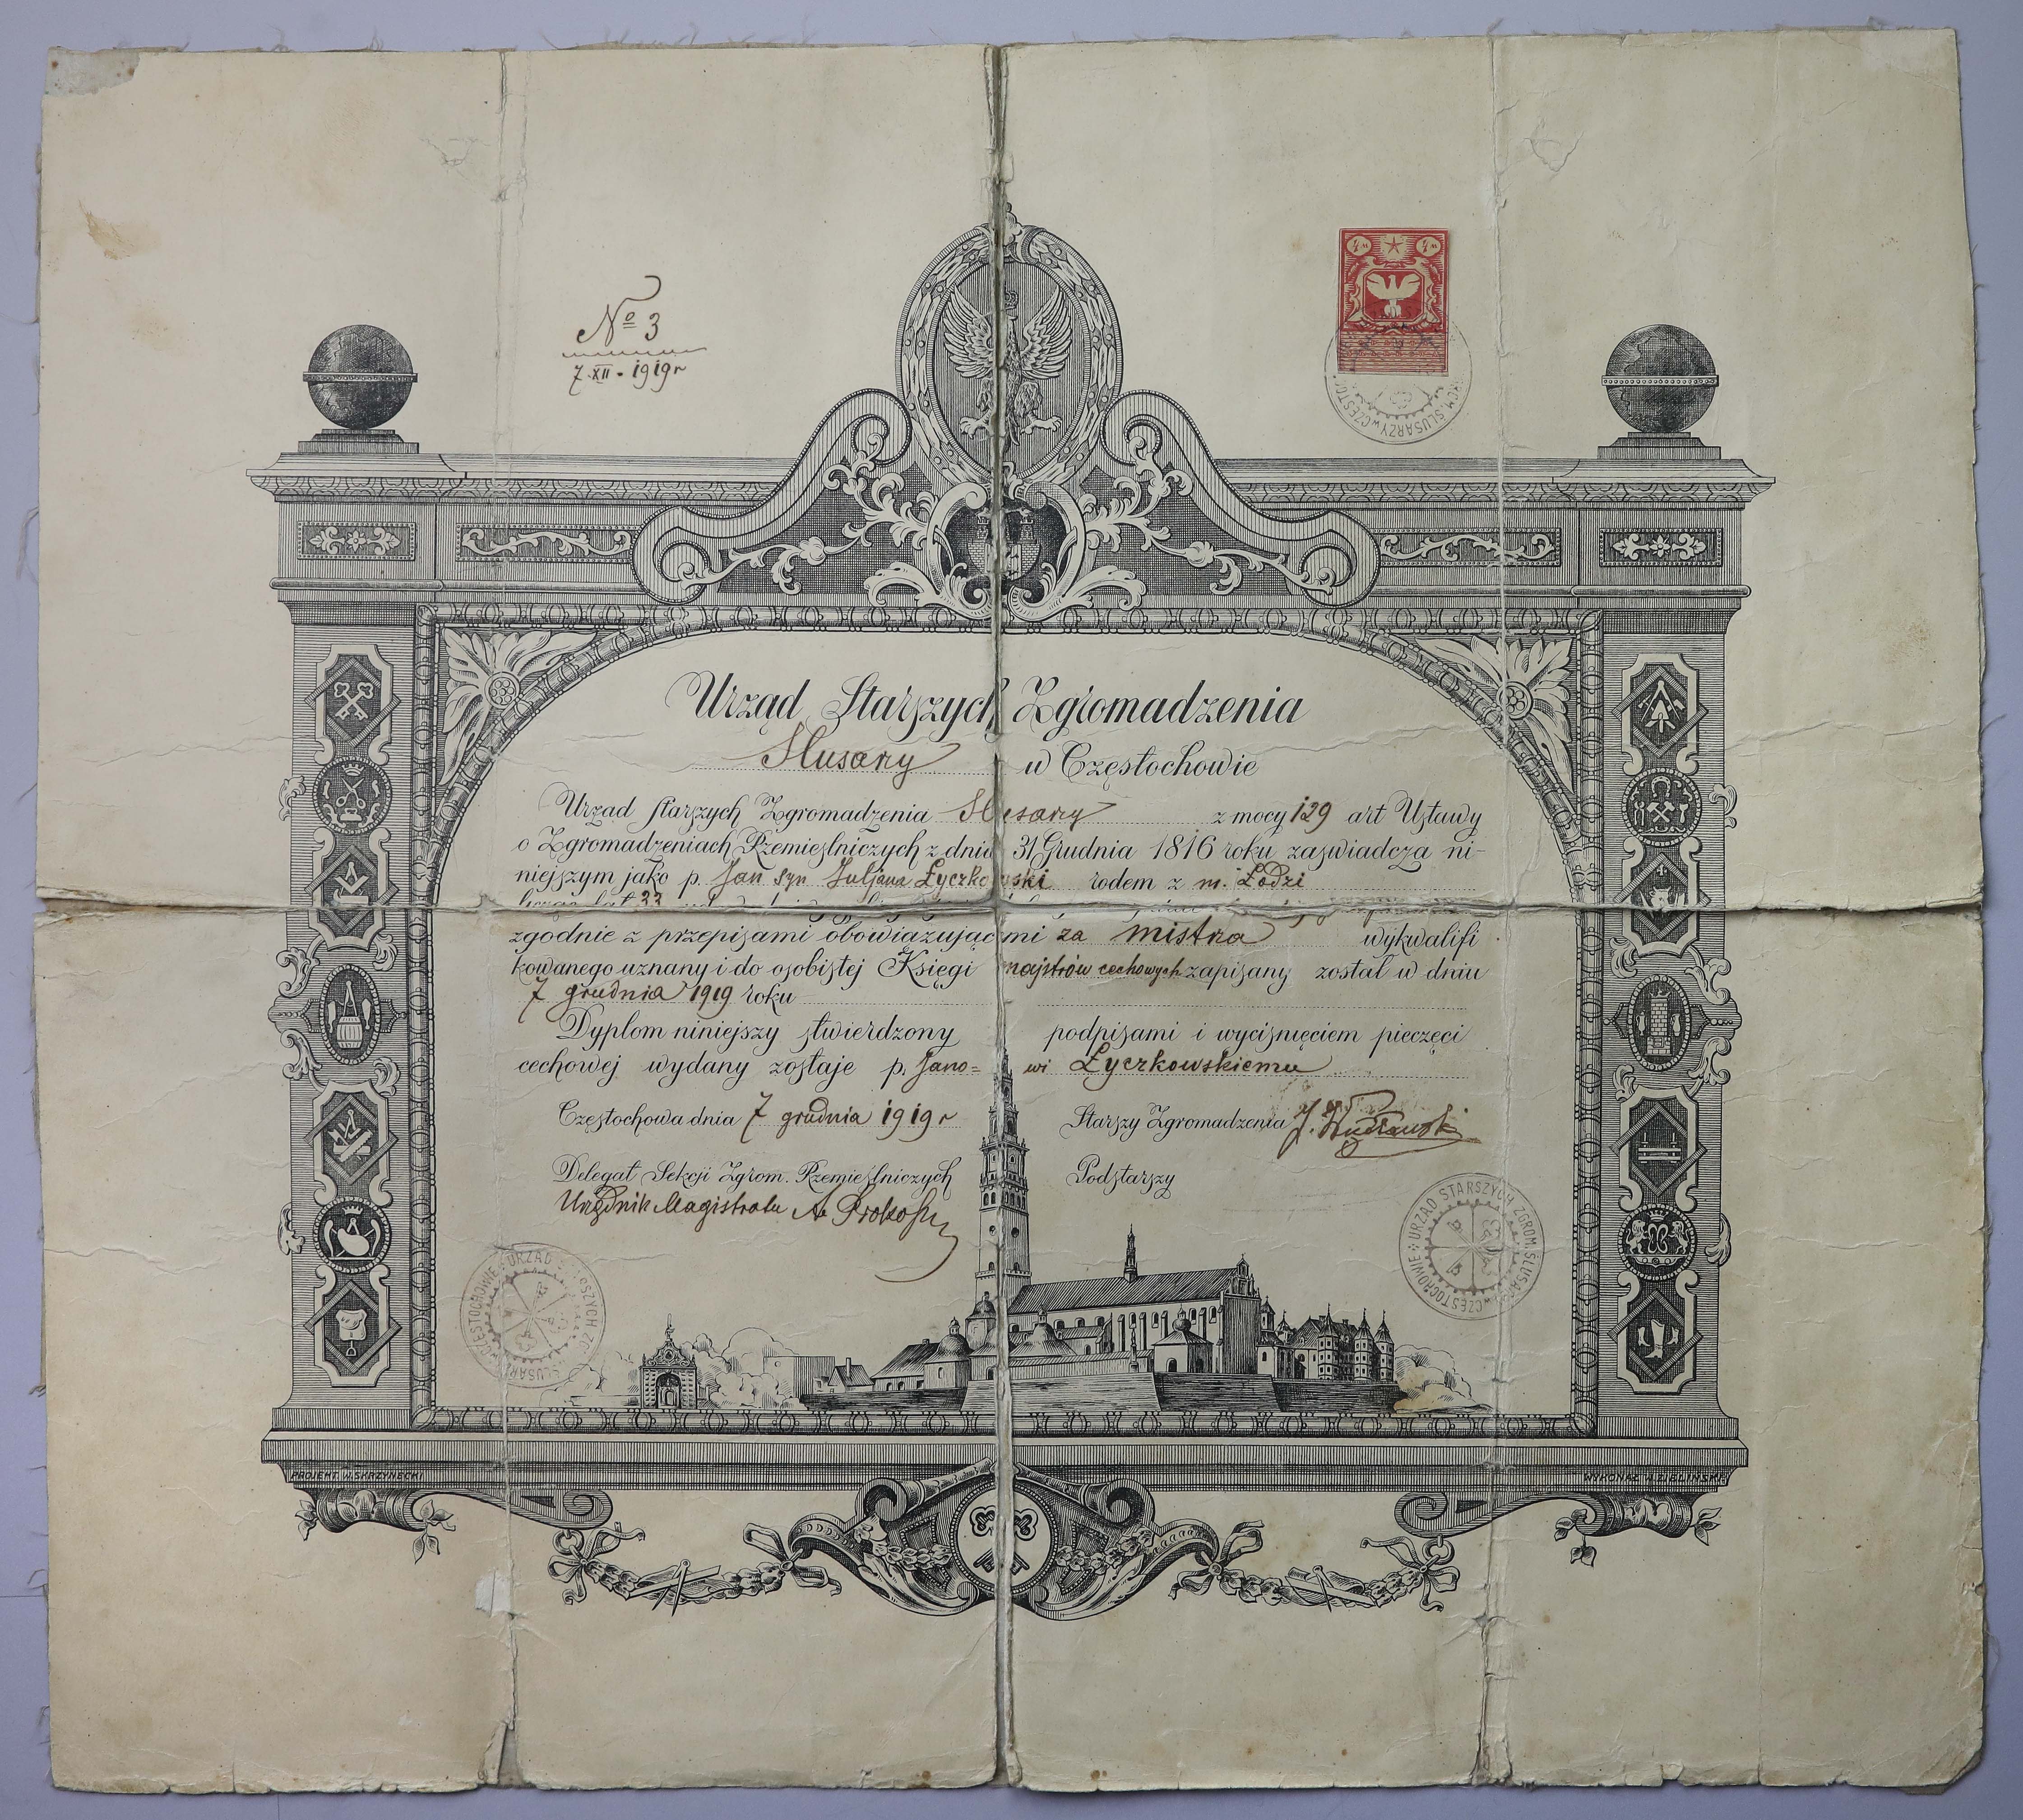 № 3
7 XII - 1919 r
4 M 4 M
ŚLUSARZY w CZĘSTOC
Urząd Starszych Zgromadzenia
Ślusarzy w Częstochowie
Urząd Starszych Zgromadzenia Ślusarzy z mocy 129 art Ustawy
o Zgromadzeniach Rzemieślniczych z dnia 31 Grudnia 1816 roku zaświadcza ni-
niejszym jako p. Jan syn Juljana Łyczkowski rodem z m. Łodzi
lat 33
zgodnie z przepisami obowiązującemi za mistra wykwalifi
kowanego uznany i do osobistej Księgi majstrów cechowych zapisany został w dniu
7 grudnia 1919 roku
Dyplom niniejszy stwierdzony podpisami i wyciśnięciem pieczęci
cechowej wydany zostaje p. Jano= wi Łyczkowskiemu
Częstochowa dnia 7 grudnia 1919 r Starszy Zgromadzenia
Delegat Sekcji Zgrom. Rzemieślniczych Podstarszy
Urzędnik Magistratu
URZĄD STARSZYCH ZGROM. ŚLUSARZY w CZĘSTOCHOWIE
URZĄD STARSZYCH ŚLUSARZY w CZĘSTOCHOWIE
PROJEKT. W. SKRZYNECKI WYKONAŁ A. ZIELIŃSKI